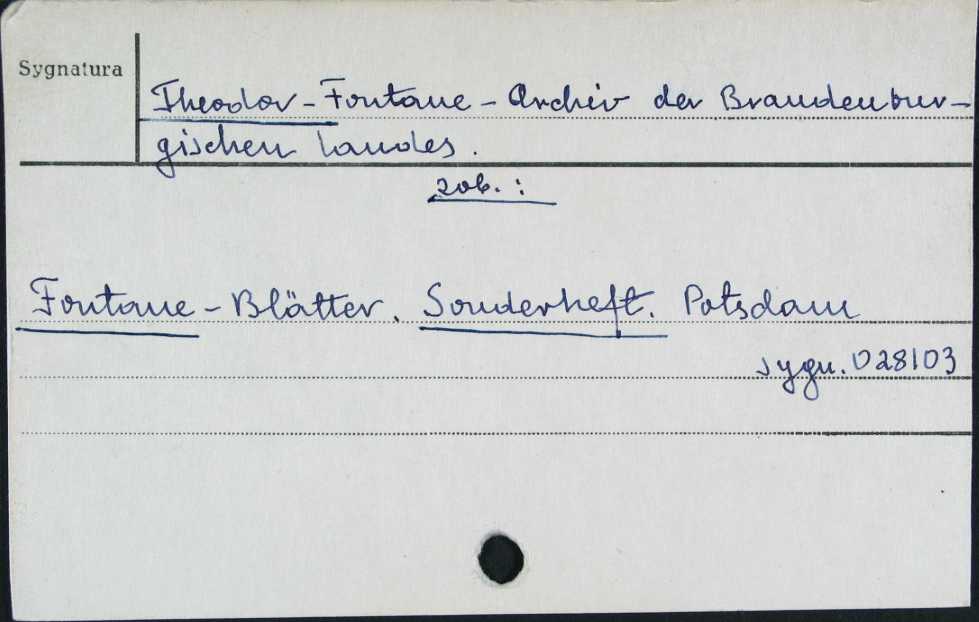 Sygnatura
Theodor-Fontane-Archiv der Brandenbur-
gischen Landes.
zob. :
Fontane-Blätter. Sonderheft. Potsdam
sygn. 028103